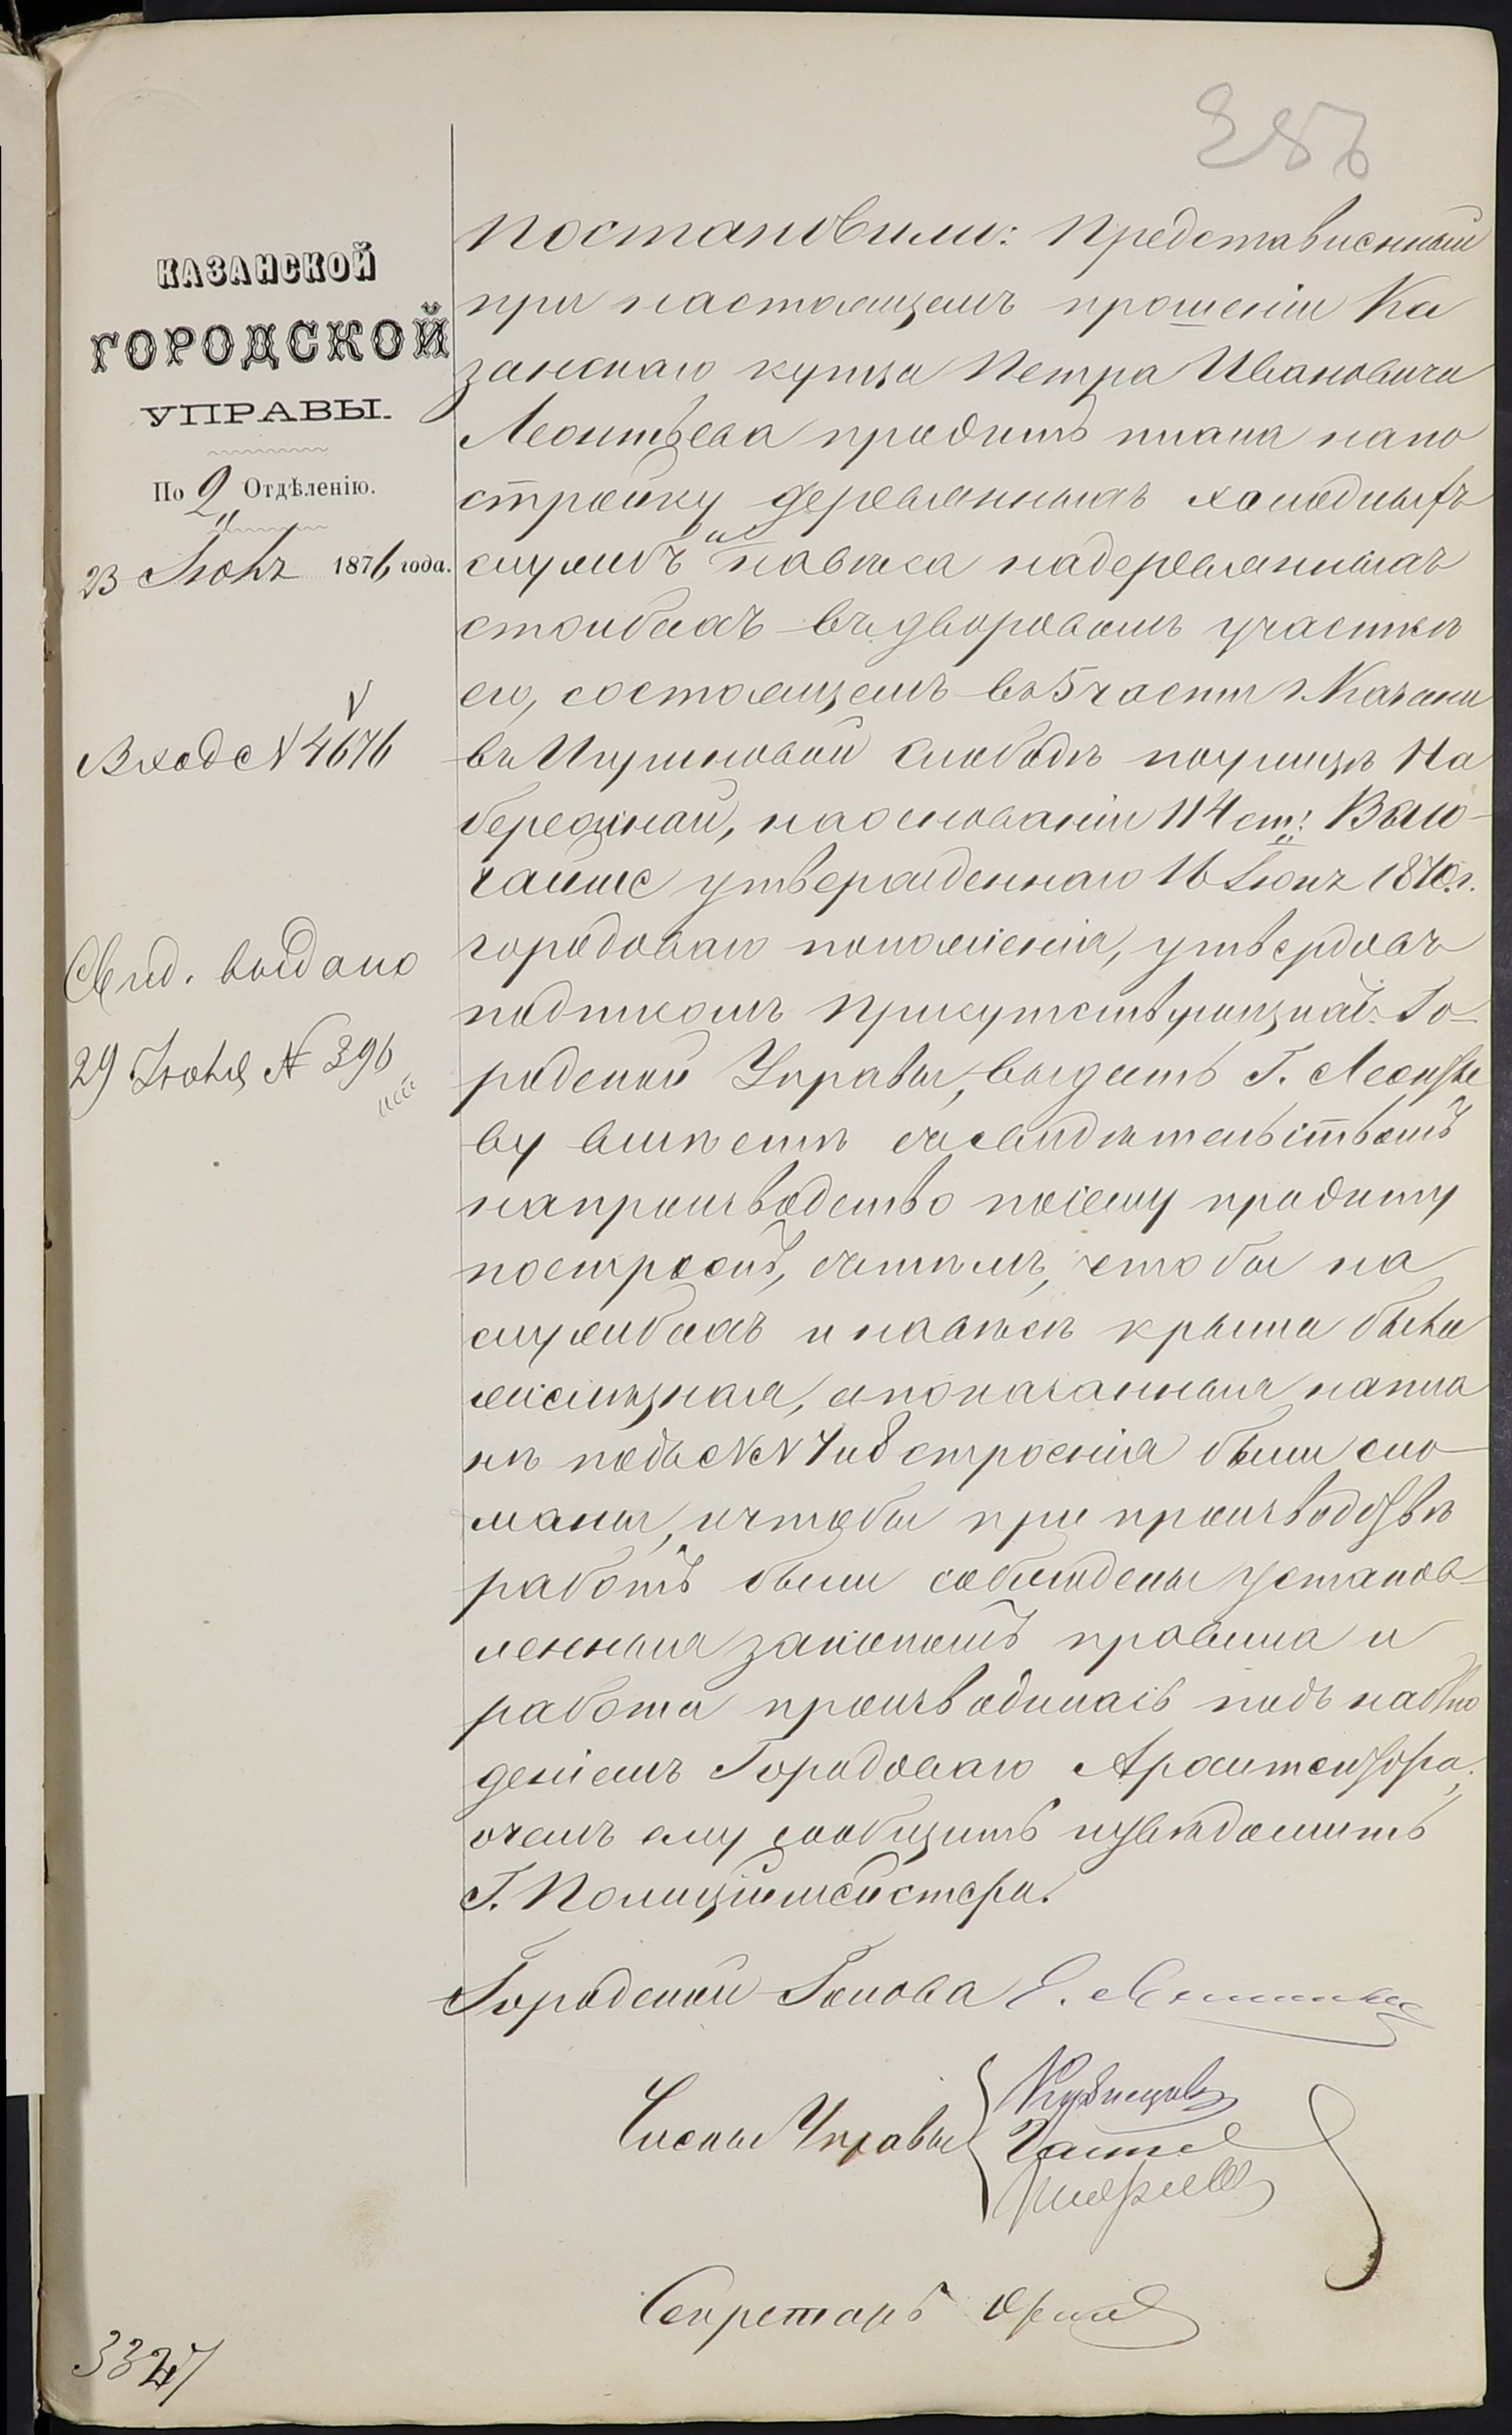 КАЗАНСКОЙ
ГОРОДСКОЙ
УПРАВЫ.
По 2 Отдѣленію.
23 Іюня 1876 года.
Вход № 4676
Свид. выдано
29 Іюня № 396
3327
постановили: Представленный
при настоящемъ прошеніи Ка
занскаго купца Петра Ивановича
Леонтьева проэктъ плана на по
стройку деревянныхъ холодныхъ
службъ и навѣса на деревянныхъ
столбахъ въ дворовомъ участкѣ
его, состоящемъ въ 5 части г. Казани
въ Игумновой слободѣ по улицѣ На
бережной, на основаніи 114 ст: Высо-
чайше утвержденнаго 16 Іюня 1870 г.
городоваго положенія, утвердивъ
подписомъ присутствующихъ Го-
родской Управы, выдать Г. Леонтье
ву вмѣстѣ съ свидѣтельствомъ
на производство по сему проэкту
построекъ, съ тѣмъ, чтобы на
службахъ и навѣсѣ крыша была
желѣзная, а показанныя на пла
нѣ подъ №№ 7 и 8 строенія были сло
маны, и чтобы при производствѣ
работъ были соблюдены установ-
ленныя закономъ правила и
работа производилась подъ наблю
деніемъ Городоваго Архитектора,
о чемъ ему сообщить и увѣдомить
Г. Полиціймейстера.
Городской Голова Е.
Члены Управы
Секретарь